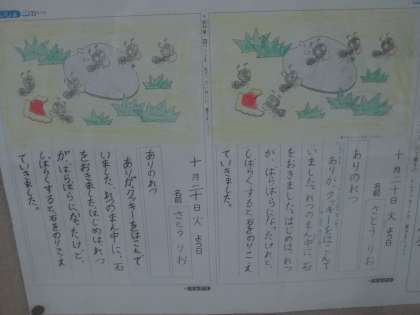 十月二十日火よう日
名前 さとう りお
ありのれつ
ありが、クッキーをはこんで
いました。れつのまん中に、石
をおきました。はじめは、れつ
が、ばらばらになったけれど、
しばらくすると、石をのりこえ
ていきました。
十月二十日火よう日
名前 さとう りお
ありのれつ
ありが、クッキーをはこんで
いました。れつのまん中に、石
をおきました。はじめは、れつ
が、ばらばらになったけれど、
しばらくすると、石をのりこえ
ていきました。